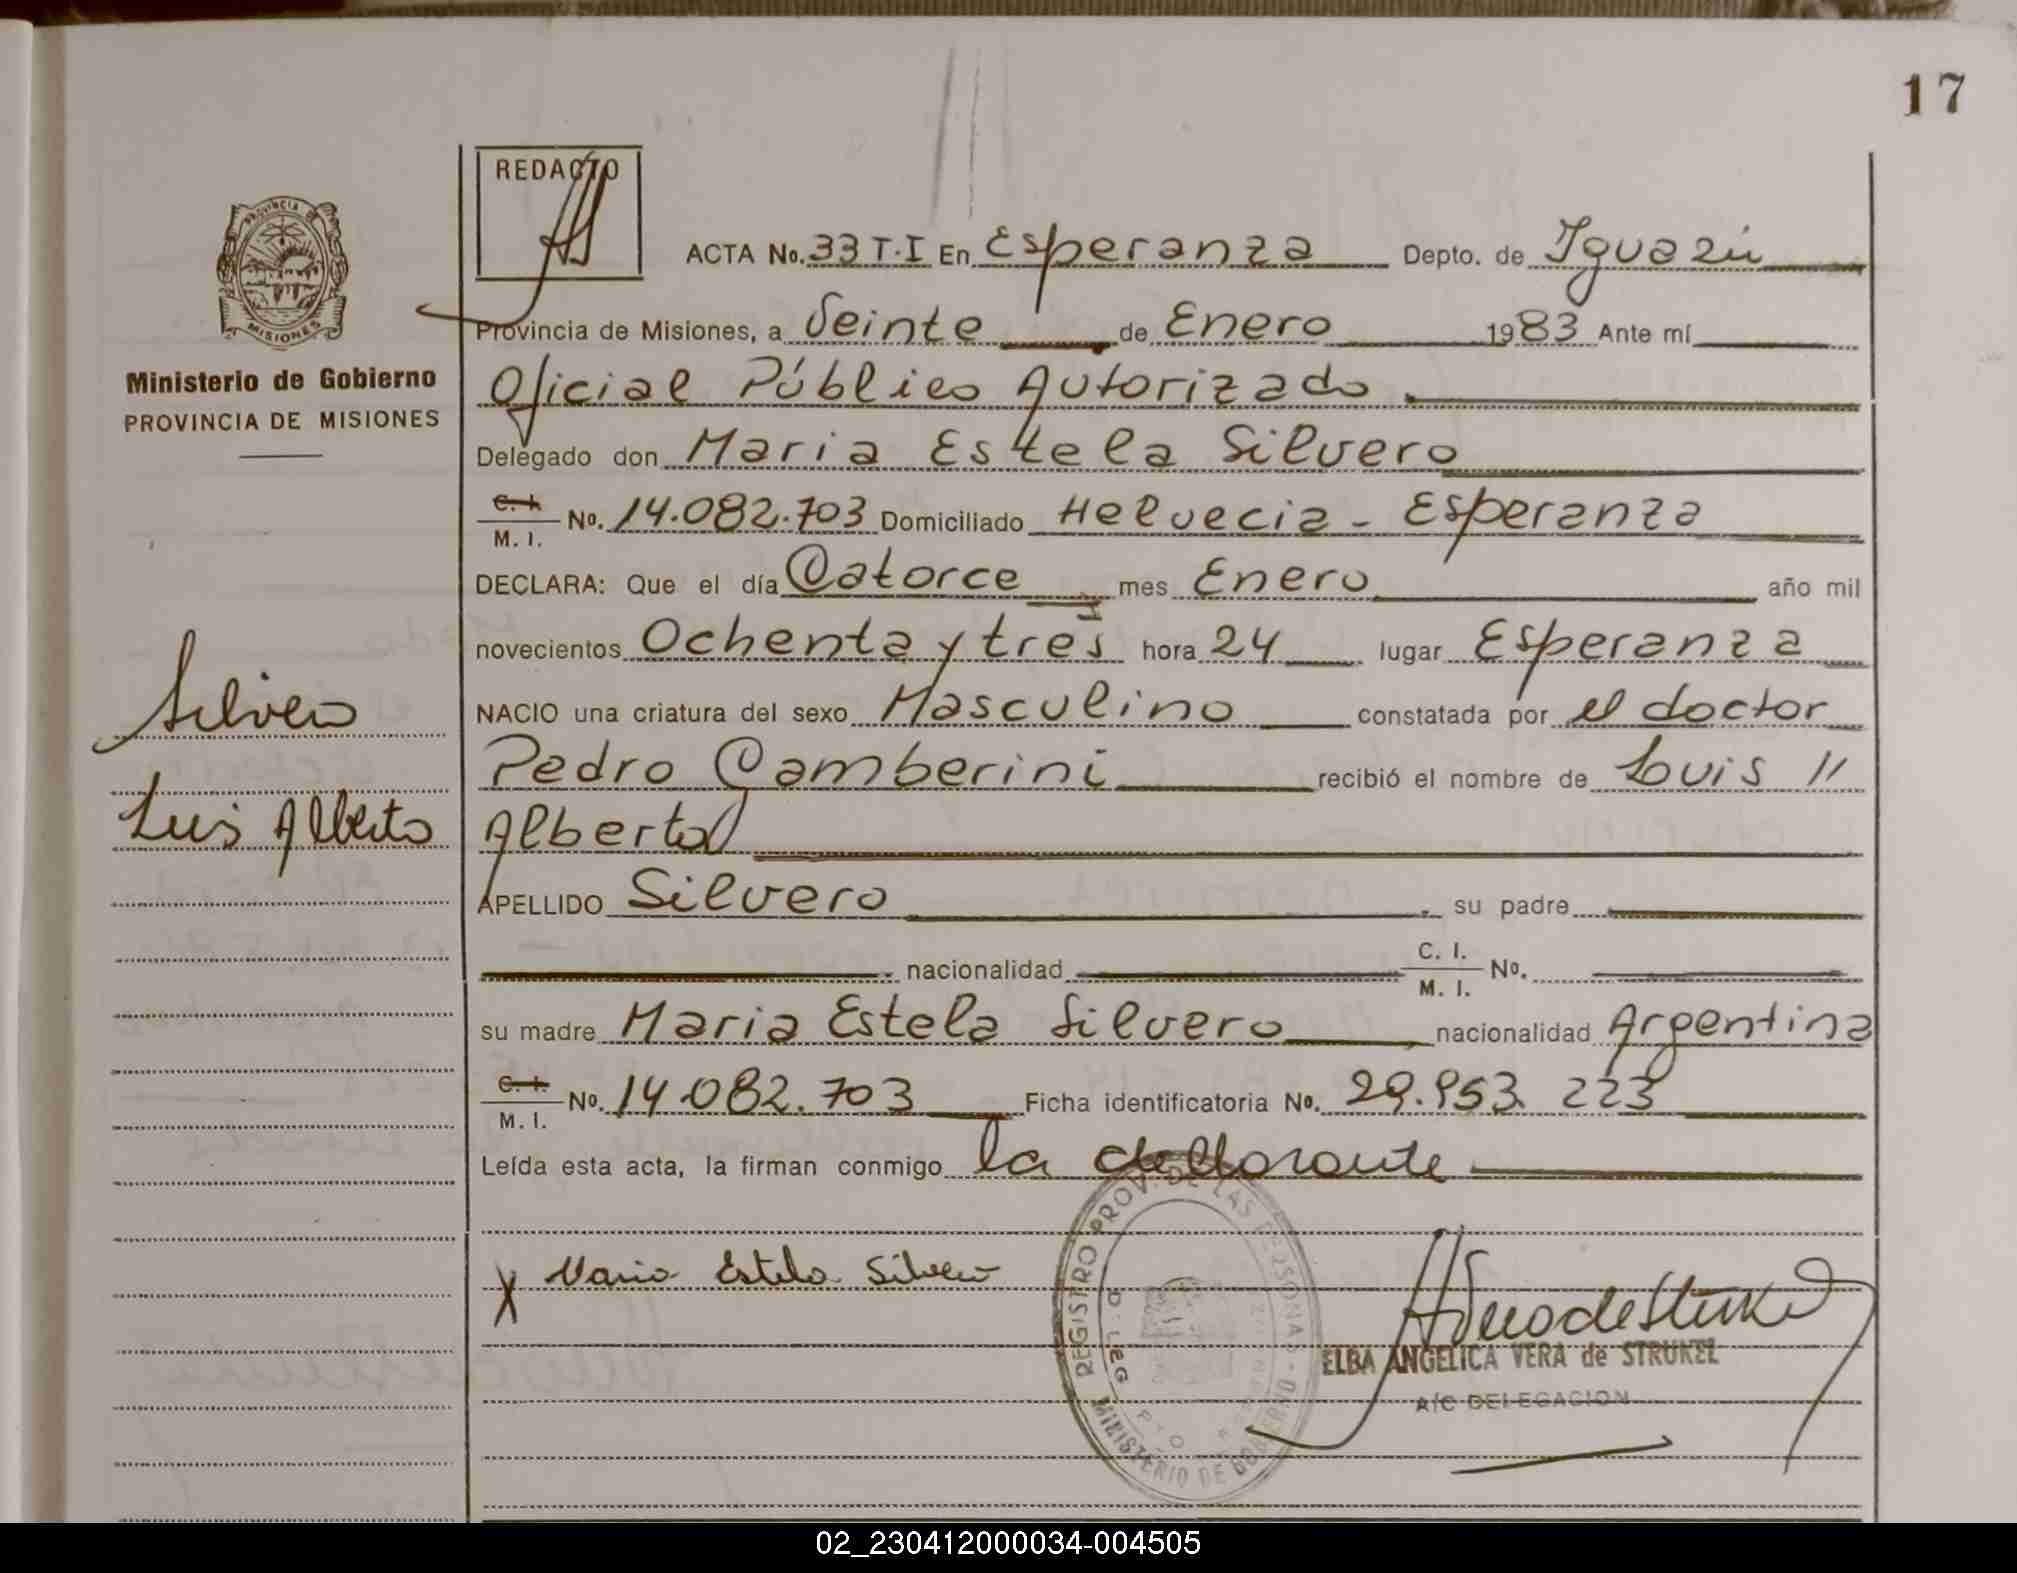 17
REDACTO
PROVINCIA DE
MISIONES
Ministerio de Gobierno
PROVINCIA DE MISIONES
Silvero
Luis Alberto
ACTA No. 33 T.I En Esperanza Depto. de Iguazú
Provincia de Misiones, a Veinte de Enero 1983 Ante mí
Oficial Público Autorizado
Delegado don Maria Estela Silvero
C. I. / M. I. No. 14.082.703 Domiciliado Helvecia - Esperanza
DECLARA: Que el día Catorce mes Enero año mil
novecientos Ochenta y tres hora 24 lugar Esperanza
NACIO una criatura del sexo Masculino constatada por el doctor
Pedro Camberini recibió el nombre de Luis //
Alberto
APELLIDO Silvero su padre
nacionalidad C. I. / M. I. No.
su madre Maria Estela Silvero nacionalidad Argentina
C. I. / M. I. No. 14.082.703 Ficha identificatoria No. 29.953.223
Leída esta acta, la firman conmigo la
X Maria Estela Silvero
REGISTRO PROV. DE LAS PERSONAS
MINISTERIO DE GOBIERNO
ELBA ANGELICA VERA de STRUKEL
A/C DELEGACION
02_230412000034-004505